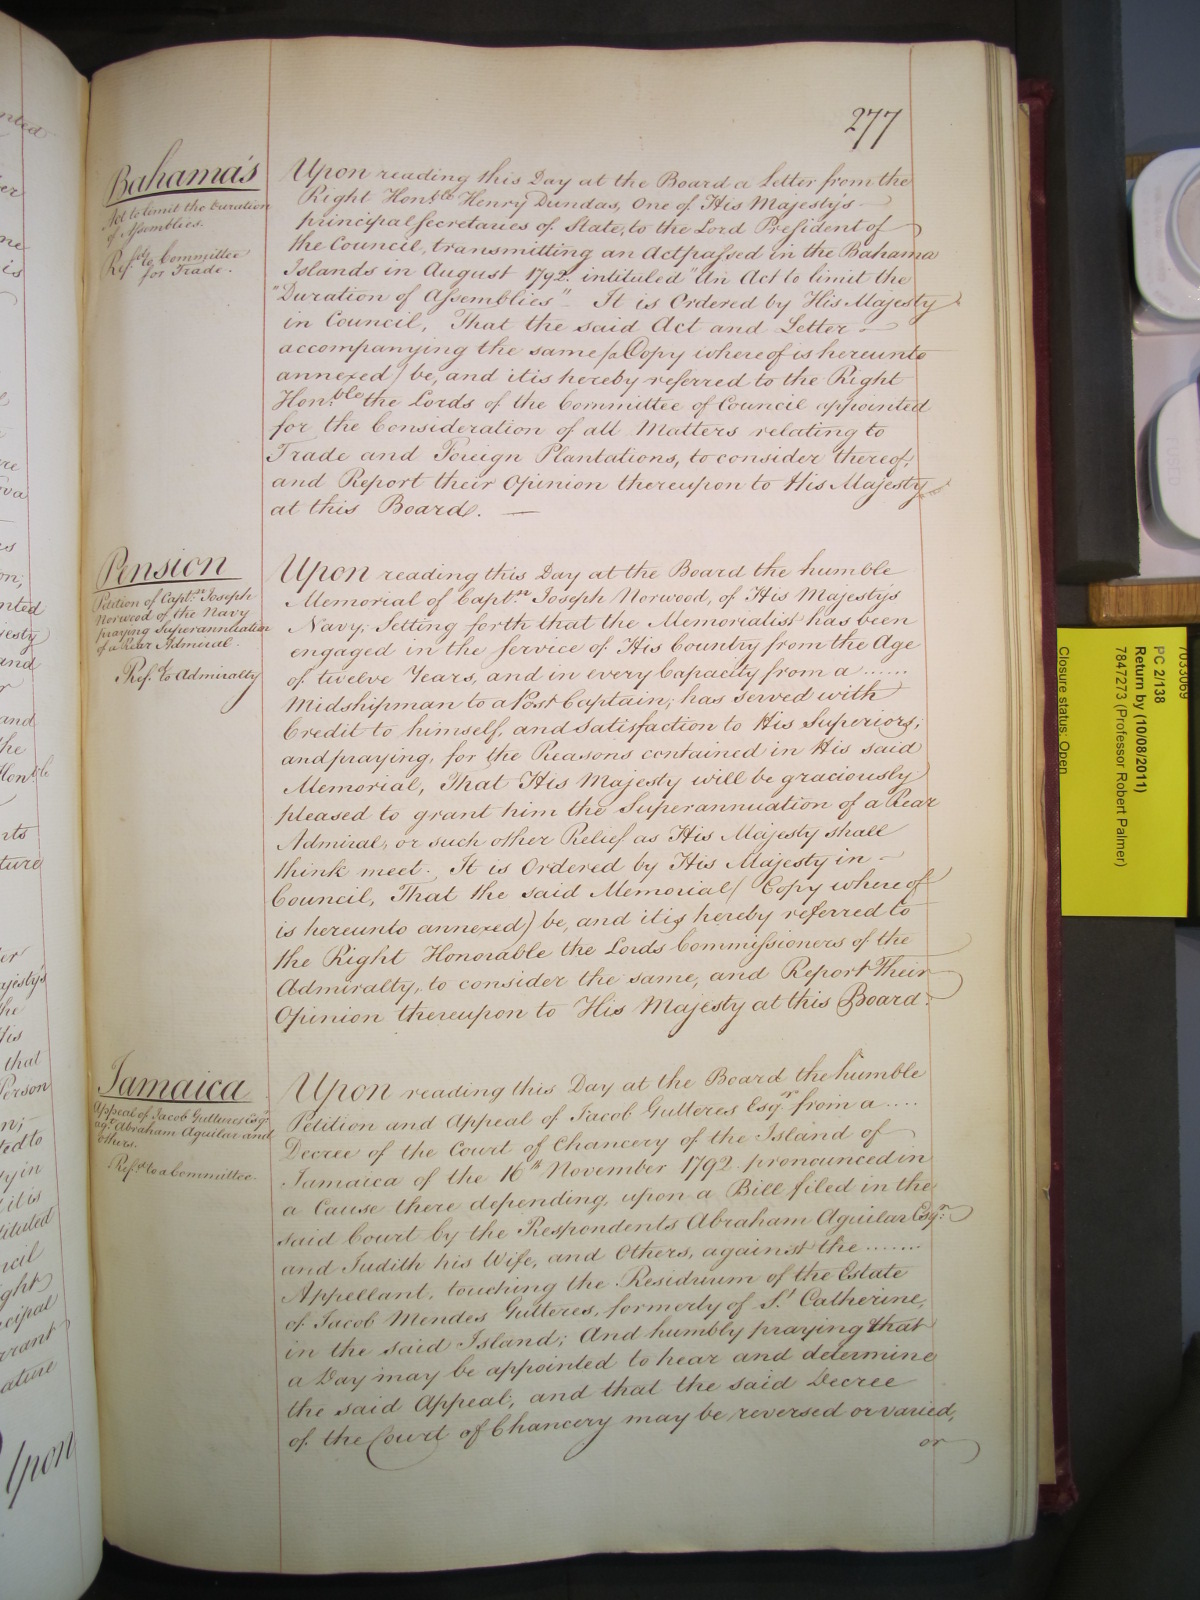 277
Bahama's
Act to limit the Duration
of Assemblies.
Ref.d to Committee
for Trade.
Upon reading this Day at the Board a Letter from the
Right Hon.ble Henry Dundas, One of His Majesty's
principal Secretaries of State, to the Lord President of
the Council, transmitting an Act passed in the Bahama
Islands in August 1792. intituled "An Act to limit the
"Duration of Assemblies" It is Ordered by His Majesty
in Council, That the said Act and Letter
accompanying the same (a Copy whereof is hereunto
annexed) be, and it is hereby referred to the Right
Hon.ble the Lords of the Committee of Council appointed
for the Consideration of all Matters relating to
Trade and Foreign Plantations, to consider thereof,
and Report their Opinion thereupon to His Majesty
at this Board. —
Pension
Petition of Capt.n Joseph
Norwood of the Navy
praying Superannuation
of a Rear Admiral.
Ref.d to Admiralty
Upon reading this Day at the Board the humble
Memorial of Capt.n Joseph Norwood, of His Majestys
Navy; Setting forth that the Memorialist has been
engaged in the Service of His Country from the Age
of twelve Years, and in every Capacity from a ......
Midshipman to a Post Captain; has served with
Credit to himself, and Satisfaction to His Superiors;
and praying, for the Reasons contained in His said
Memorial, That His Majesty will be graciously
pleased to grant him the Superannuation of a Rear
Admiral, or such other Relief as His Majesty shall
think meet. It is Ordered by His Majesty in —
Council, That the said Memorial (Copy whereof
is hereunto annexed) be, and it is hereby referred to
the Right Honorable the Lords Commissioners of the
Admiralty, to consider the same, and Report Their
Opinion thereupon to His Majesty at this Board.
Jamaica
Appeal of Jacob Gutteres Esq.r
ag.t Abraham Aguilar and
others.
Ref.d to a Committee.
Upon reading this Day at the Board the humble
Petition and Appeal of Jacob Gutteres Esq.r from a ....
Decree of the Court of Chancery of the Island of
Jamaica of the 16th November 1792. pronounced in
a Cause there depending, upon a Bill filed in the
said Court by the Respondents Abraham Aguilar Esq.r
and Judith his Wife, and Others, against the .......
Appellant, touching the Residuum of the Estate
of Jacob Mendes Gutteres, formerly of S.t Catherine,
in the said Island; And humbly praying that
a Day may be appointed to hear and determine
the said Appeal; and that the said Decree
of the Court of Chancery may be reversed or varied,
or
7033069
PC 2/138
Return by (10/08/2011)
7847273 (Professor Robert Palmer)
Closure status: Open
Upon